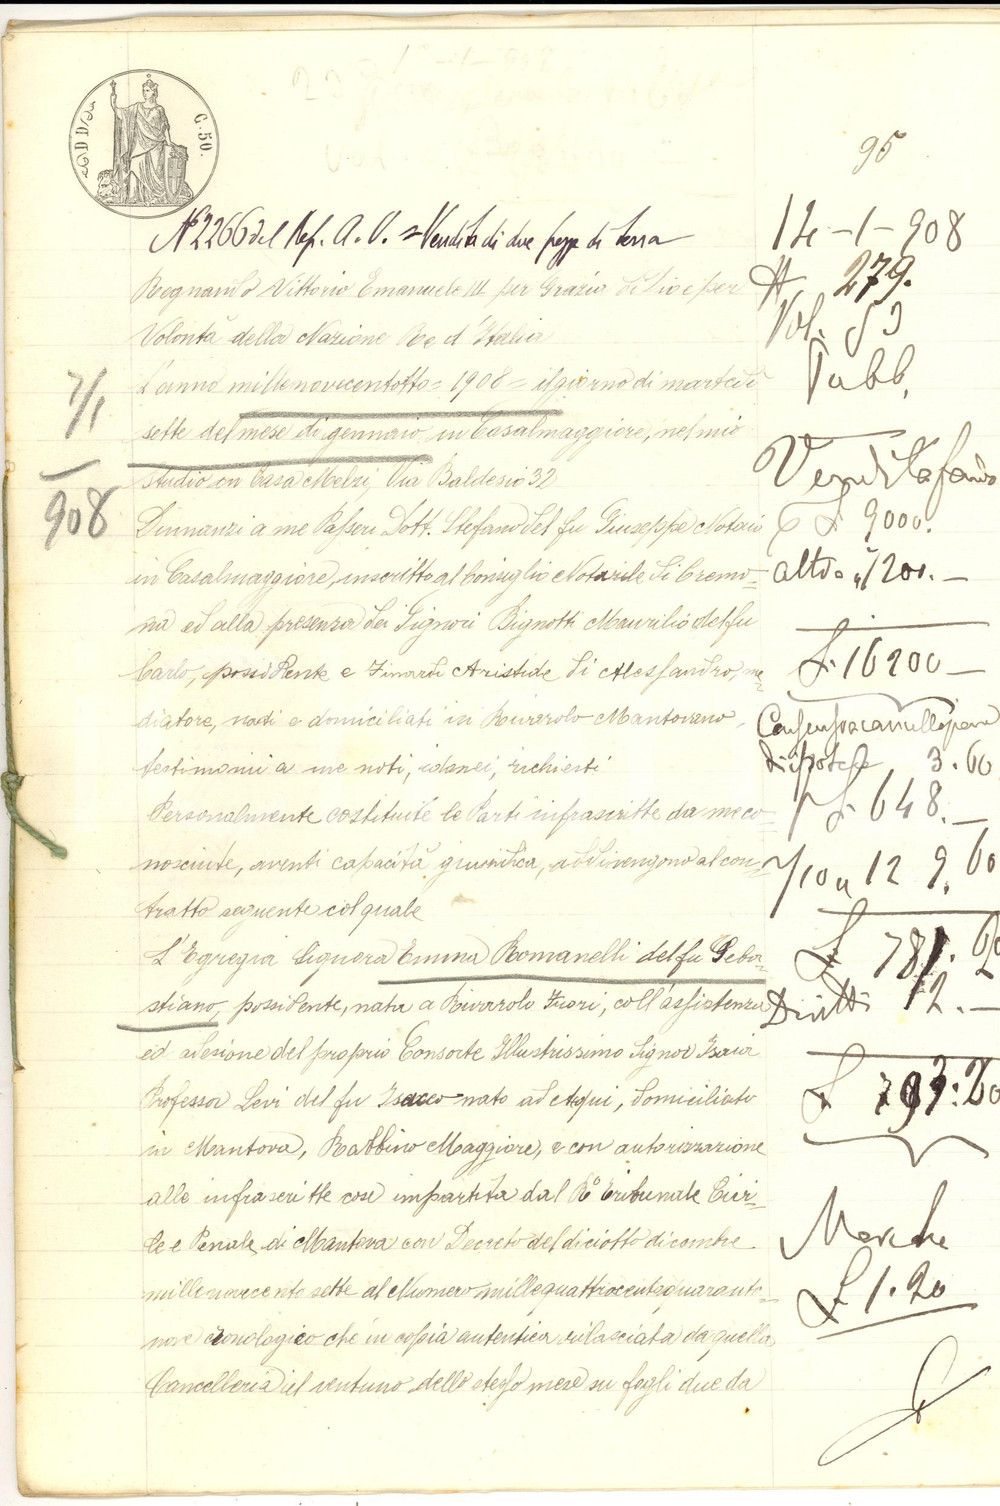 C. 50.
95
N° 2266 del Rep. A. V. = Vendita di due pezze di terra
Regnando Vittorio Emanuele III per Grazia di Dio e per
Volontà della Nazione Re d'Italia
L'anno millenovecentotto = 1908 = il giorno di martedì
sette del mese di gennaio in Casalmaggiore, nel mio
studio in Casa Melzi, Via Baldesio 32
Dinnanzi a me Passeri Dott. Stefano del fu Giuseppe Notaio
in Casalmaggiore, inscritto al Consiglio Notarile di Cremo=
na ed alla presenza dei Signori Bignotti Maurilio del fu
Carlo, possidente e Finardi Aristide di Alessandro, me=
diatore, nati e domiciliati in Rivarolo Mantovano,
testimoni a me noti, idonei, richiesti
Personalmente costituite le Parti infrascritte da me co=
nosciute, aventi capacità giuridica, addivengono al con=
tratto seguente col quale
L'Egregia Signora Emma Romanelli del fu Seba=
stiano, possidente, nata a Rivarolo Fuori, coll'assistenza
ed adesione del proprio Consorte Illustrissimo Signor Isaia
Professor Levi del fu Isacco nato ad Acqui, domiciliato
in Mantova, Rabbino Maggiore, e con autorizzazione
alle infrascritte cose impartita dal R° Tribunale Civi=
le e Penale di Mantova con Decreto del diciotto dicembre
millenovecentosette al Numero millequattrocentoquaranta=
nove cronologico che in copia autentica rilasciata da quella
Cancelleria il ventuno dello stesso mese su fogli due da
7/1
908
14-1-908
N 279.
Vol. 53
Pubb.
Vendita fondo
£ 9000.
altro " 7200. —
£ 16200 —
di ipoteche 3.60
£ 648. —
7/10 a 129.60
£ 781.20
Diritti 12. —
£ 793.20
Marche
£ 1.20